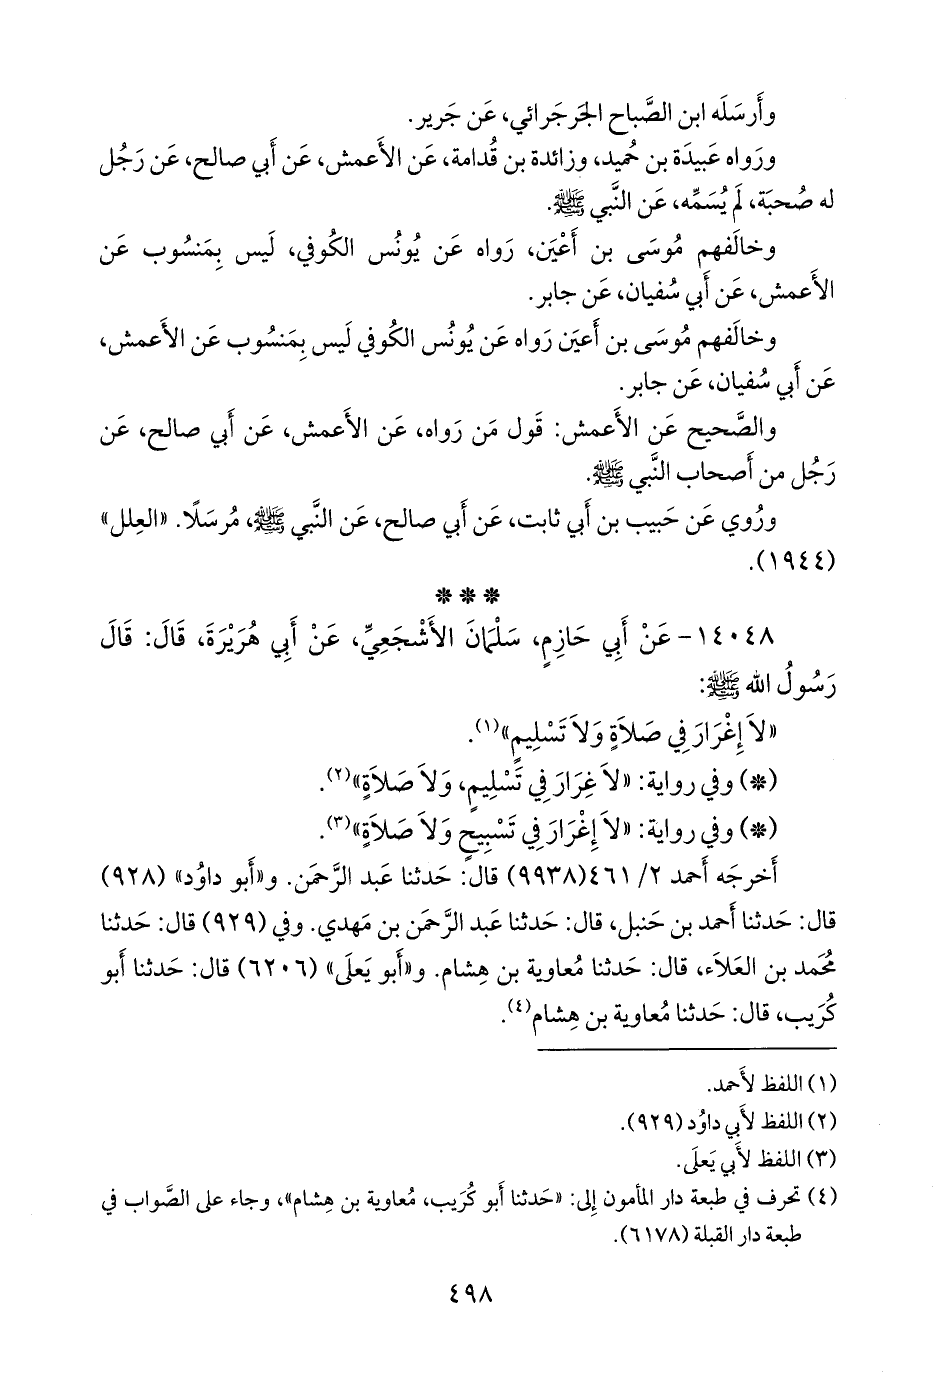 وأَرسَلَه ابن الصَّباح الجَرجَرائي، عَن جَرير.
ورَواه عَبيدَة بن حُميد، وزائدة بن قُدامة، عَن الأَعمش، عَن أَبي صالح، عَن رَجُل
له صُحبَة، لَم يُسَمِّه، عَن النَّبي ﷺ.
وخالَفهم مُوسَى بن أَعْيَن، رَواه عَن يُونُس الكُوفي، لَيس بِمَنسُوب عَن
الأَعمش، عَن أَبي سُفيان، عَن جابر.
وخالَفهم مُوسَى بن أَعيَن رَواه عَن يُونُس الكُوفي لَيس بِمَنسُوب عَن الأَعمش،
عَن أَبي سُفيان، عَن جابر.
والصَّحيح عَن الأَعمش: قَول مَن رَواه، عَن الأَعمش، عَن أَبي صالح، عَن
رَجُل من أَصحاب النَّبي ﷺ.
ورُوي عَن حَبيب بن أَبي ثابت، عَن أَبي صالح، عَن النَّبي ﷺ، مُرسَلًا. «العِلل»
(١٩٤٤).
* * *
١٤٠٤٨- عَنْ أَبِي حَازِمٍ، سَلْمَانَ الأَشْجَعِيِّ، عَنْ أَبِي هُرَيْرَةَ، قَالَ: قَالَ
رَسُولُ الله ﷺ:
«لاَ إِغْرَارَ فِي صَلاَةٍ وَلاَ تَسْلِيمٍ»(١).
(*) وفي رواية: «لاَ غِرَارَ فِي تَسْلِيمٍ، وَلاَ صَلاَةٍ»(٢).
(*) وفي رواية: «لاَ إِغْرَارَ فِي تَسْبِيحٍ وَلاَ صَلاَةٍ»(٣).
أَخرجَه أَحمد ٢/ ٤٦١(٩٩٣٨) قال: حَدثنا عَبد الرَّحمَن. و«أَبو داوُد» (٩٢٨)
قال: حَدثنا أَحمد بن حَنبل، قال: حَدثنا عَبد الرَّحمَن بن مَهدي. وفي (٩٢٩) قال: حَدثنا
مُحمد بن العَلاَء، قال: حَدثنا مُعاوية بن هِشام. و«أَبو يَعلَى» (٦٢٠٦) قال: حَدثنا أَبو
كُرَيب، قال: حَدثنا مُعاوية بن هِشام(٤).
(١) اللفظ لأَحمد.
(٢) اللفظ لأَبي داوُد (٩٢٩).
(٣) اللفظ لأَبي يَعلَى.
(٤) تحرف في طبعة دار المأمون إِلى: «حَدثنا أَبو كُرَيب، مُعاوية بن هِشام»، وجاء على الصَّواب في
طبعة دار القبلة (٦١٧٨).
٤٩٨